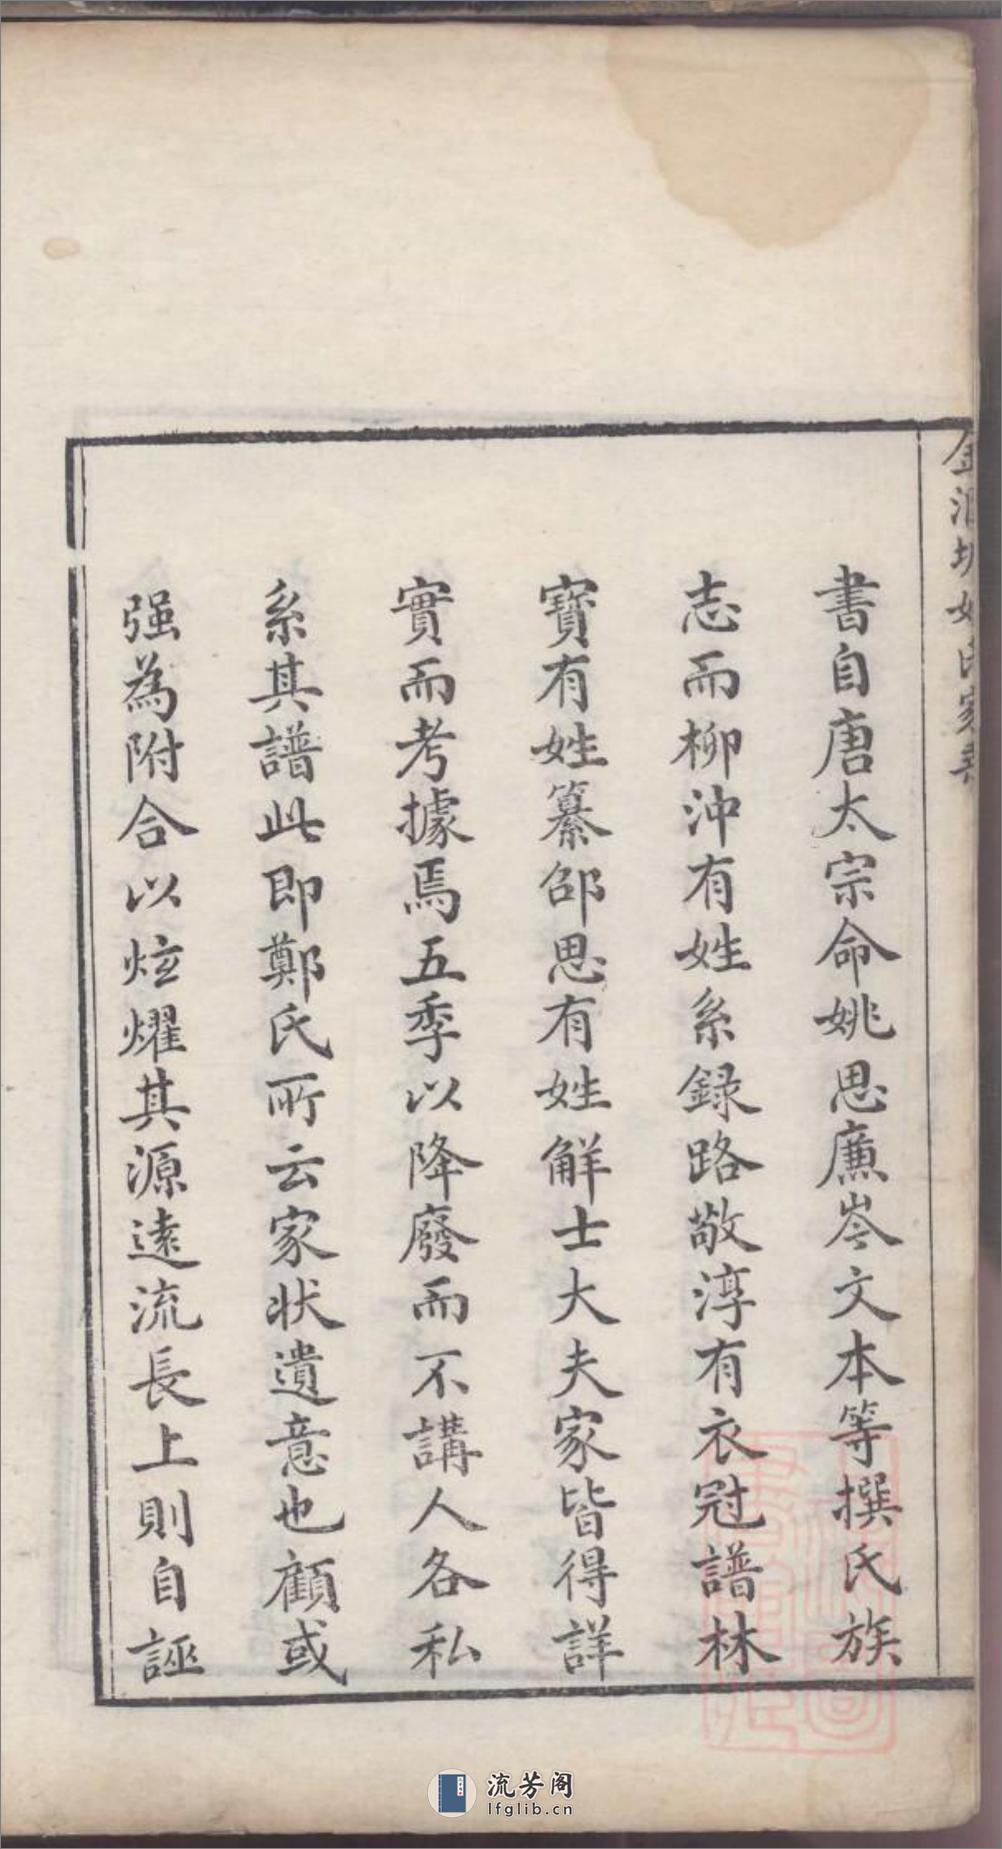 書自唐太宗命姚思廉岑文本等撰氏族
志而柳沖有姓系録路敬淳有衣冠譜林
寶有姓纂邵思有姓解士大夫家皆得詳
實而考據焉五季以降廢而不講人各私
系其譜此即鄭氏所云家状遺意也顧或
强為附合以炫燿其源遠流長上則自誣
流芳阁
lfglib.cn